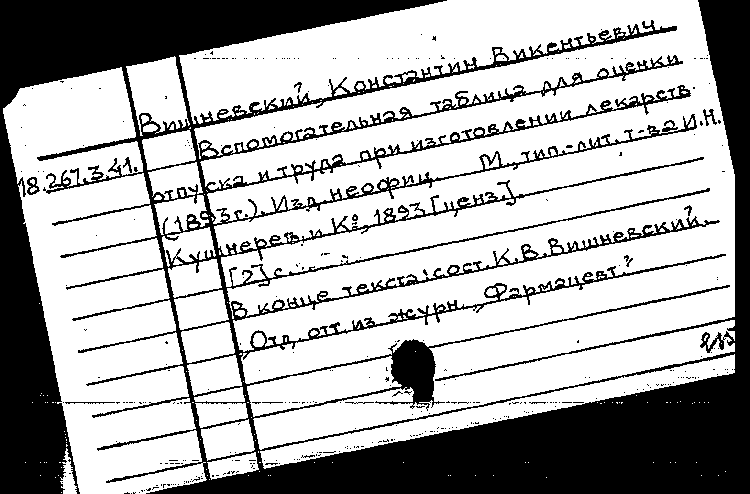 Вишневский, Константин Викентьевич.
Вспомогательная таблица для оценки
18.267.3.41.
отпуска и труда при изготовлении лекарств
(1893г.). Изд. неофиц. М., тип.-лит. т-ва И.Н.
Кушнерев и К°, 1893 [ценз.].
[2] с.
В конце текста: сост. К.В. Вишневский.
Отд. отт. из журн. „Фармацевт."